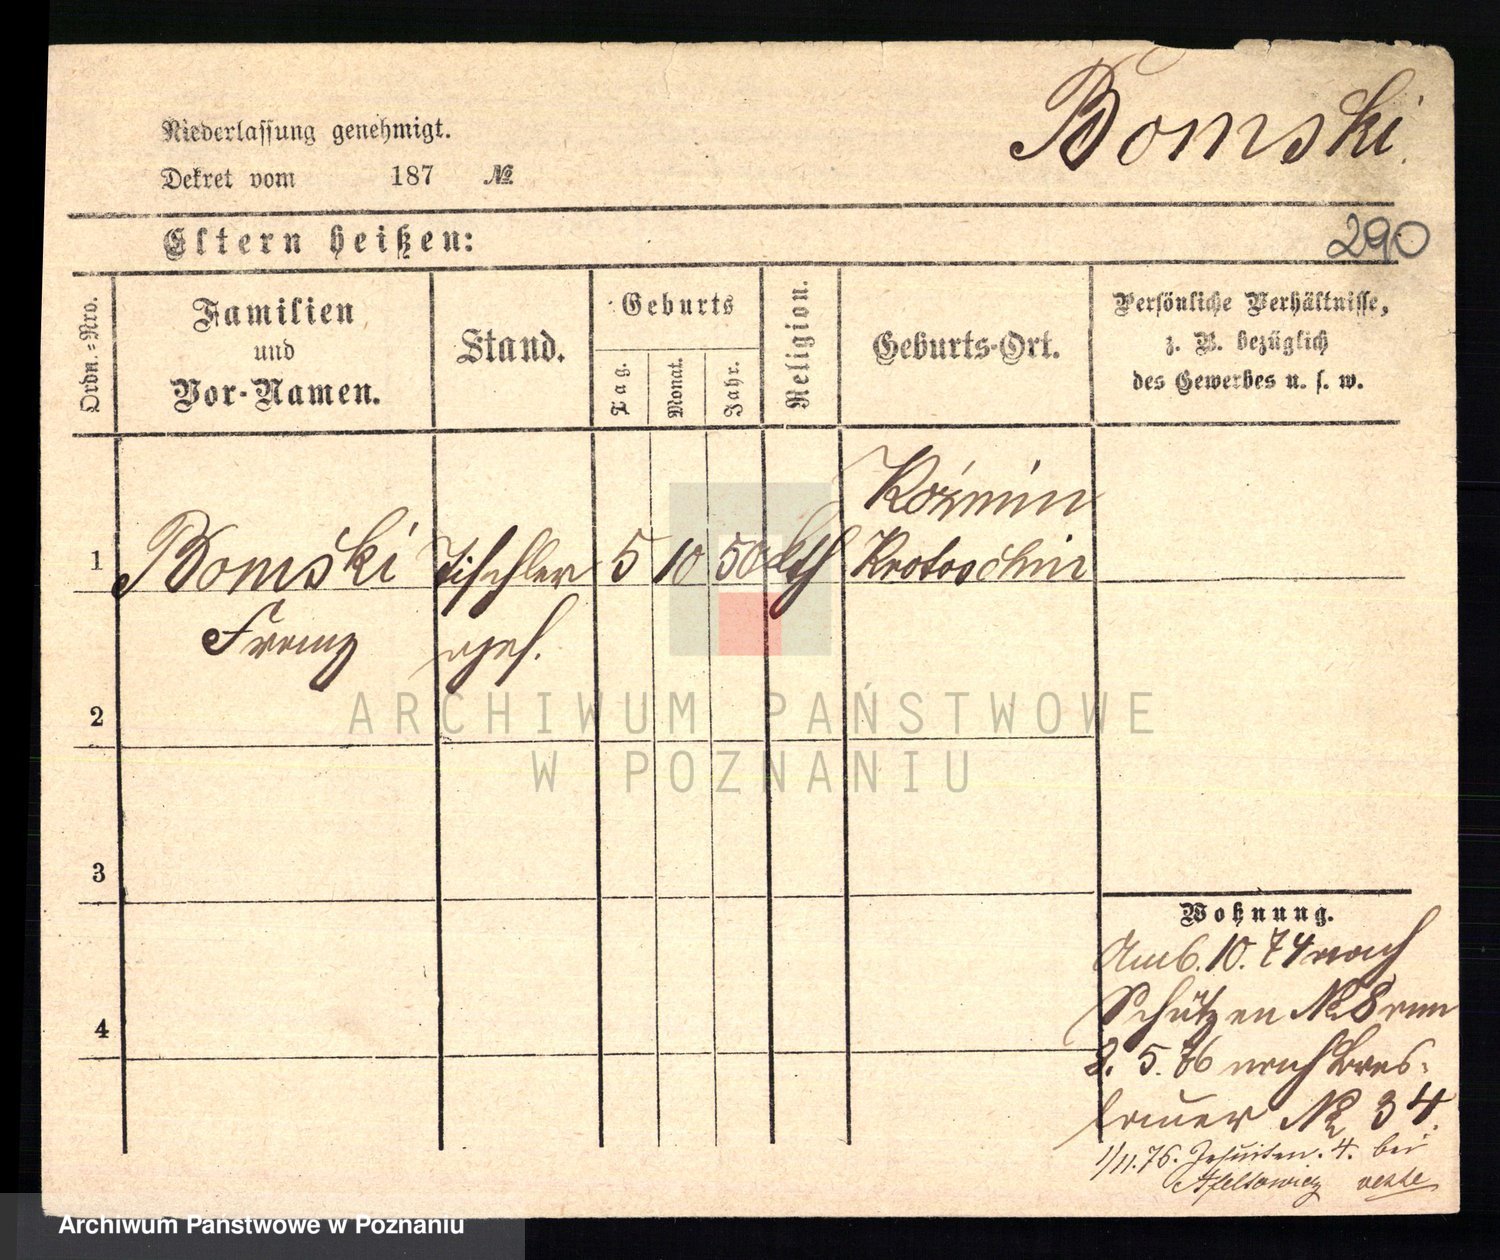 Bomski.
Niederlassung genehmigt.
Dekret vom 187 №
290
Eltern heißen:
Ordn.-Nro.
Familien
und
Vor-Namen.
Stand.
Geburts
Tag.
Monat.
Jahr.
Religion.
Geburts-Ort.
Persönliche Verhältnisse,
z. B. bezüglich
des Gewerbes u. s. w.
Koźmin
1 Bomski Tischler 5 10 50 kth Krotoschin
Franz ges.
2
ARCHIWUM PAŃSTWOWE
W POZNANIU
3
Wohnung.
Am 6. 10. 74 nach
Schützen № 8
4
2. 5. 76 nach Bres-
lauer № 34.
1/11. 76. Jesuiten. 4. bei
Archiwum Państwowe w Poznaniu